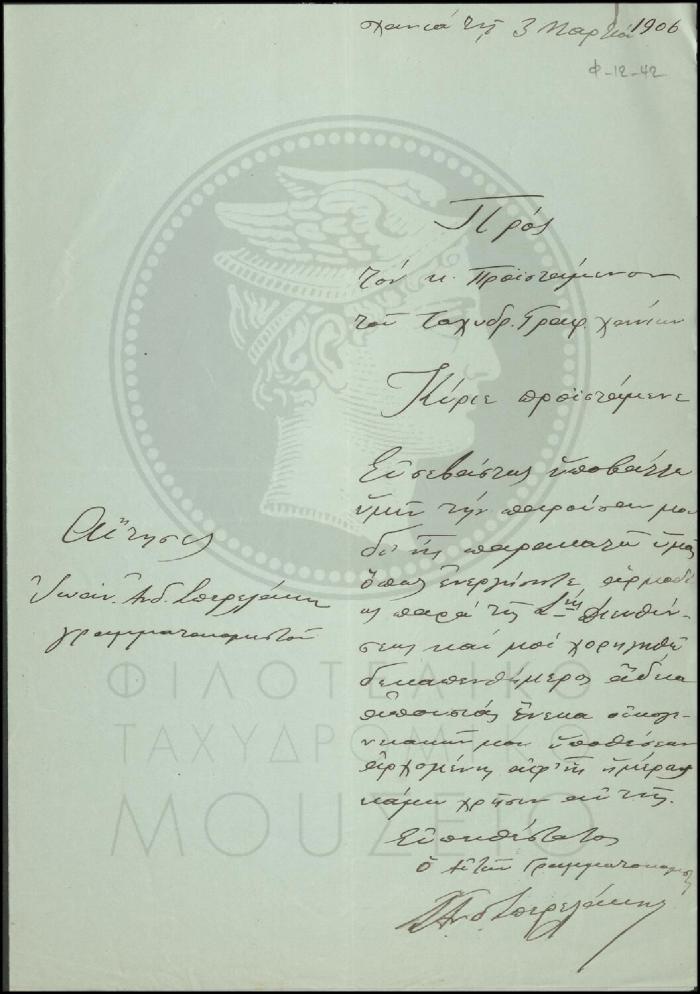 Χανιά τῇ 3 Μαρτίου 1906
Φ-12-42
Πρός
τόν κ. Προϊστάμενον
τοῦ Ταχυδρ. Γραφ. Χανίων
Κύριε προϊστάμενε
Εὐσεβάστως ὑποβάλλω
ὑμῖν τήν παροῦσαν μου
δι' ἧς παρακαλῶ ὑμᾶς
ὅπως ἐνεργήσητε ἁρμοδί
ως παρά τῆς Σ^{τῆς} Διευθύν-
σεως καί μοί χορηγηθῇ
δεκαπενθήμερος ἄδεια
ἀπουσίας ἕνεκα οἰκογε-
νειακῶν μου ὑποθέσεων
ἀρχομένη ἀφ' ἧς ἡμέρας
κάμω χρῆσιν αὐτῆς.
Εὐπειθέστατος
ὁ Αἰτῶν Γραμματοκομιστής
Αἴτησις
Ἰωάν. Ἀνδ.
γραμματοκομιστοῦ
ΦΙΛΟΤΕΛΙΚΟ
ΤΑΧΥΔΡΟΜΙΚΟ
ΜΟΥΣΕΙΟ